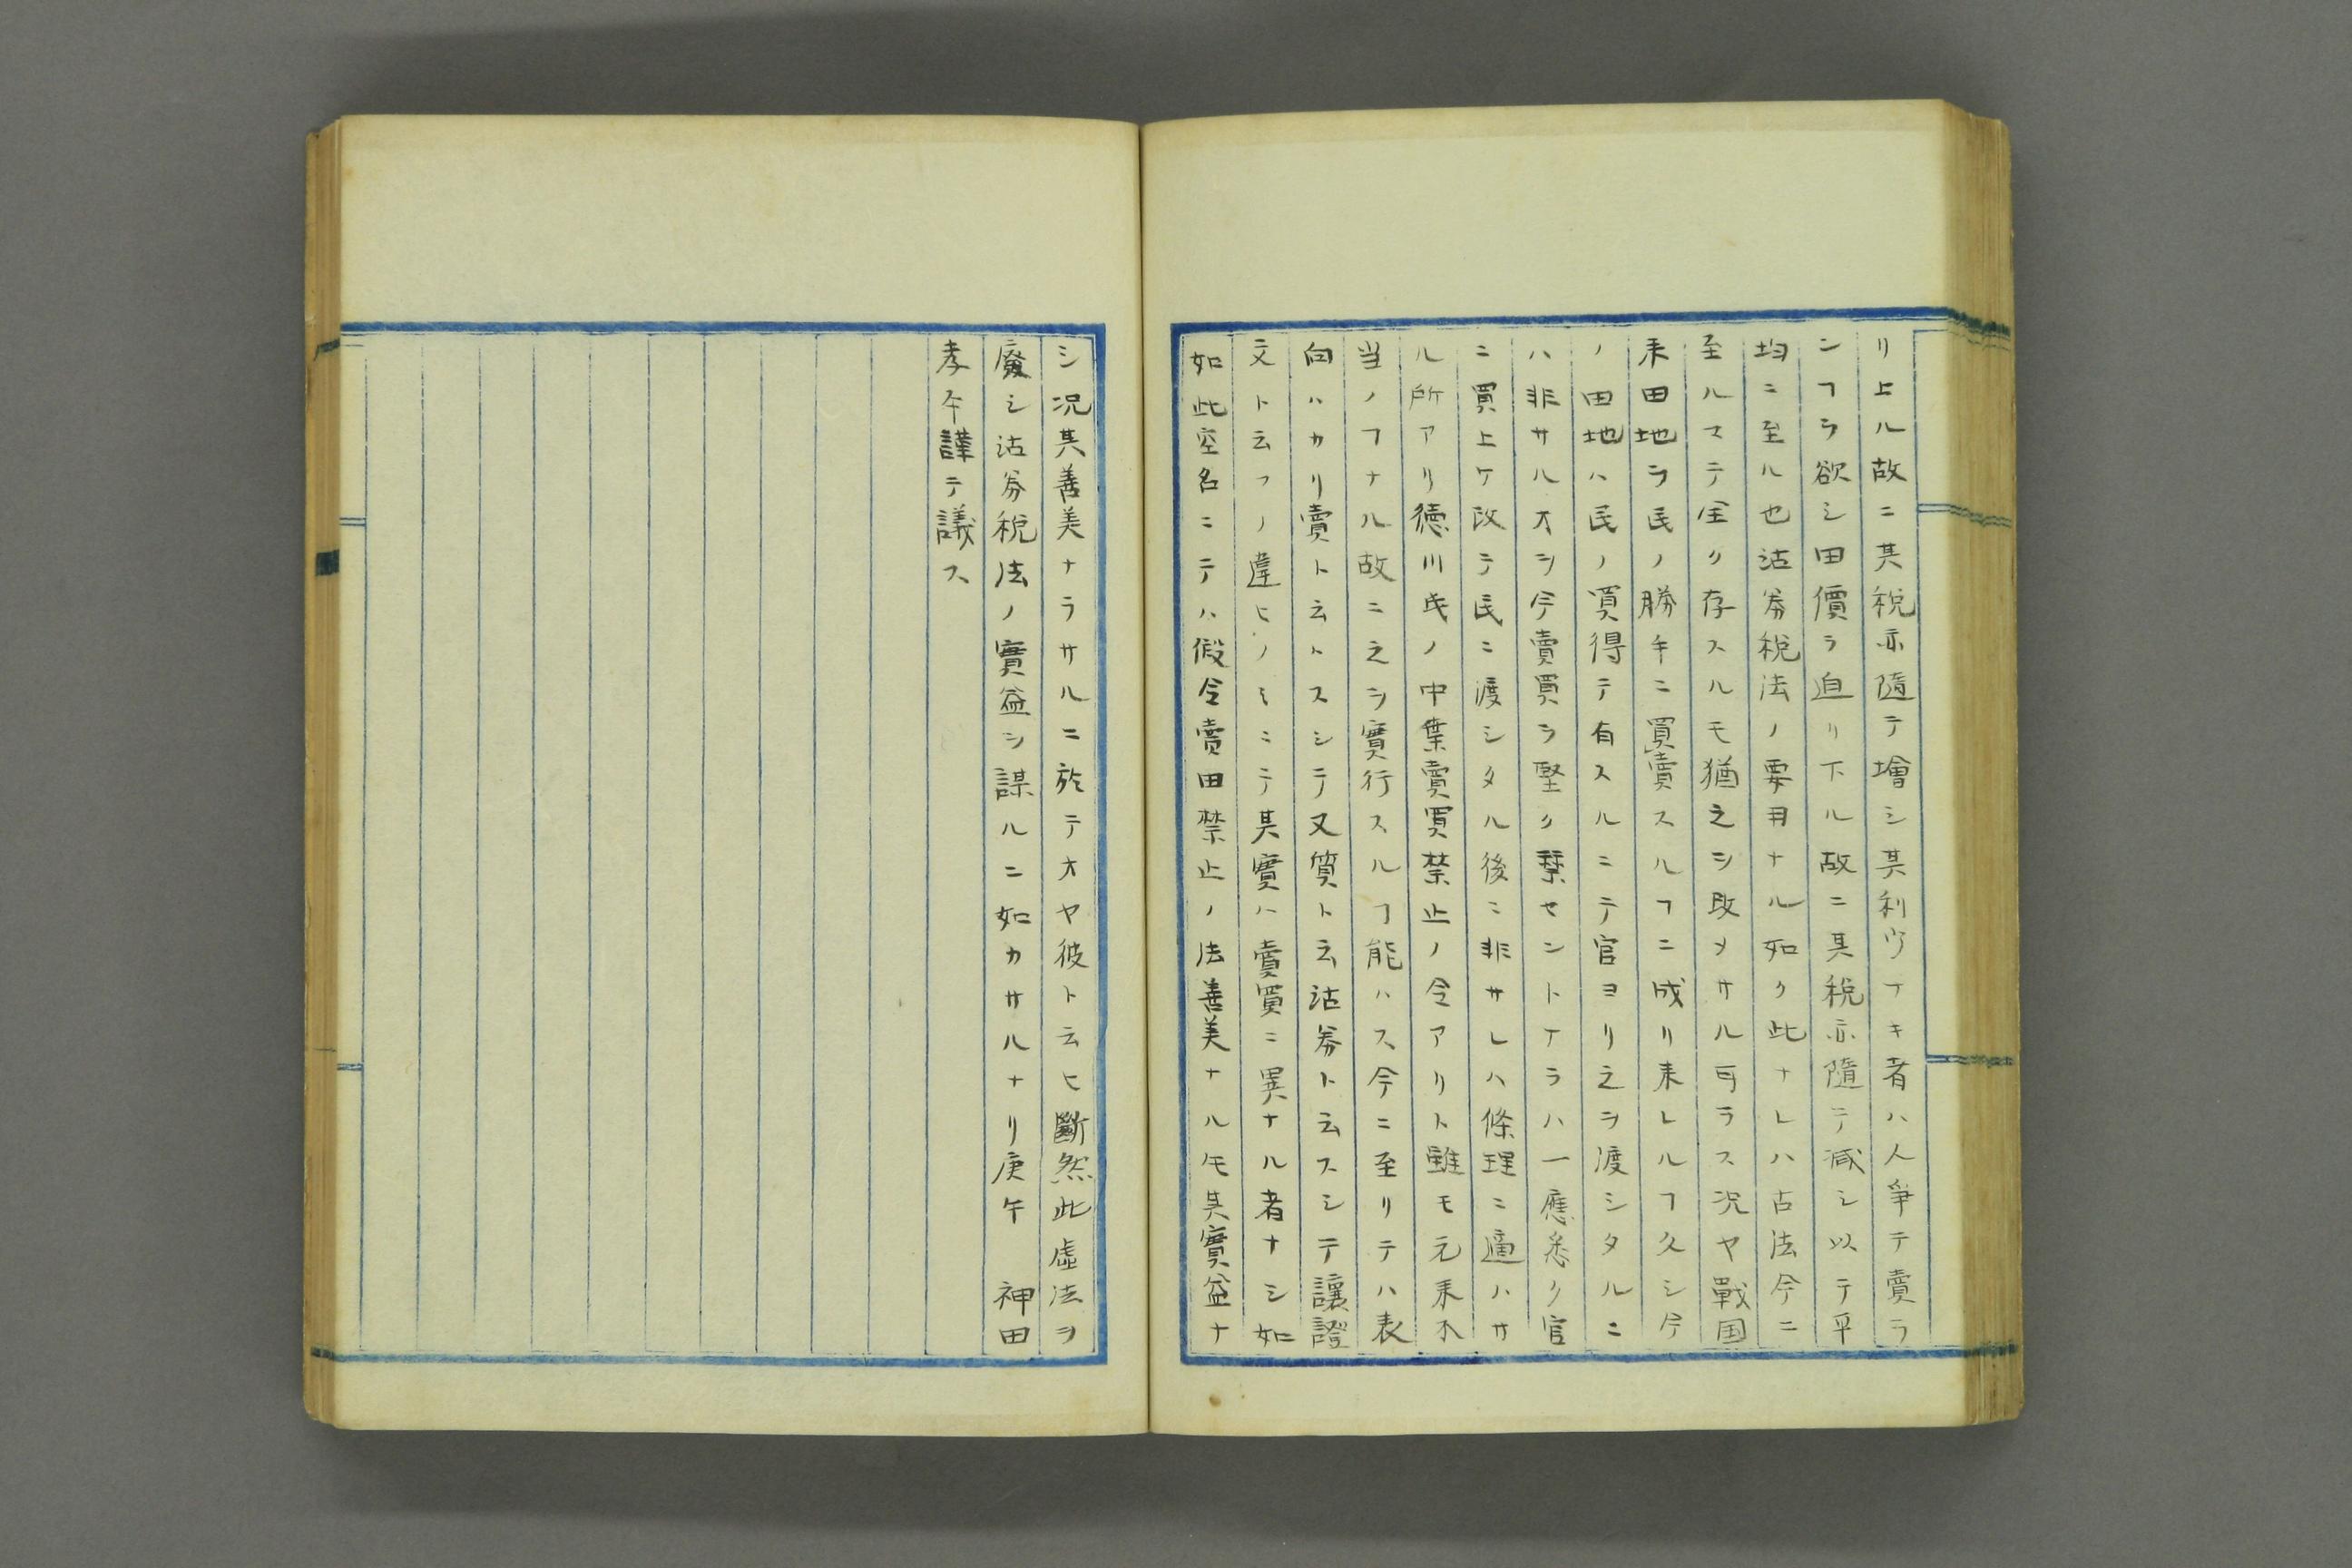 リ上ル故ニ其税亦隨テ增シ其利少ナキ者ハ人爭テ賣ラ
ンヿヲ欲シ田價ヲ迫リ下ル故ニ其税亦隨テ減シ以テ平
均ニ至ル也沽券税法ノ要用ナル如ク此ナレハ古法今ニ
至ルマテ全ク存スルモ猶之ヲ改メサル可ラス况ヤ戰国
来田地ヲ民ノ勝手ニ買賣スルヿニ成リ来レルヿ久シ今
ノ田地ハ民ノ買得テ有スルニテ官ヨリ之ヲ渡シタルニ
ハ非サルオヲ今賣買ヲ堅ク禁セントナラハ一應悉ク官
ニ買上ケ改テ民ニ渡シタル後ニ非サレハ條理ニ適ハサ
ル所アリ德川氏ノ中葉賣買禁止ノ令アリト雖モ元来不
当ノヿナル故ニ之ヲ實行スルヿ能ハス今ニ至リテハ表
向ハカリ賣ト云トスシテ又質ト云沽券ト云スシテ讓證
文ト云フノ違ヒノミニテ其實ハ賣買ニ異ナル者ナシ如
如此空名ニテハ假令賣田禁止ノ法善美ナルモ其實益ナ
シ况其善美ナラサルニ於テオヤ彼ト云ヒ斷然此虚法ヲ
廢シ沽券税法ノ實益ヲ謀ルニ如カサルナリ庚午 神田
孝平謹テ議ス